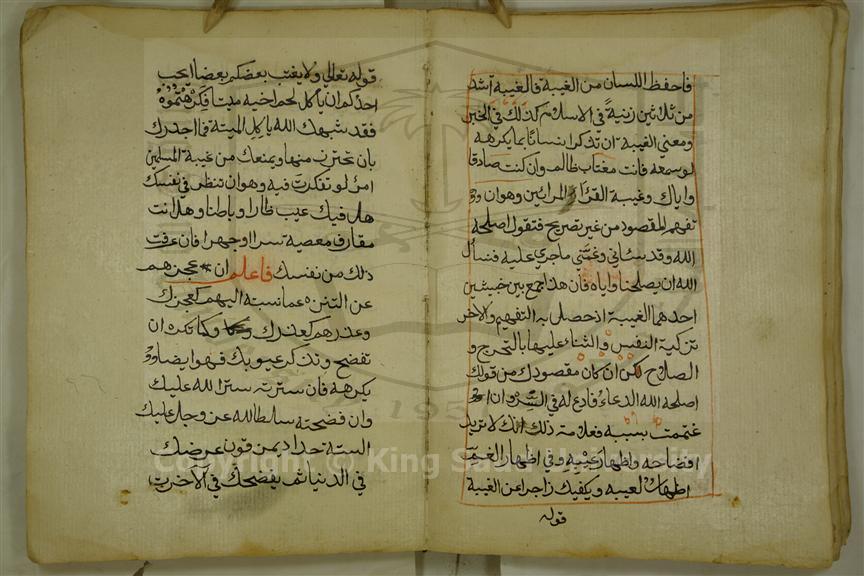 فاحفظ اللسان من الغيبة فالغيبة أشد
من ثلاثين زنية في الاسلام كذلك في الخبر
ومعني الغيبة ان تذكر انسانا بما يكرهه
لو سمعه فانت مغتاب ظالم وان كنت صادقا
واياك وغيبة القراء المرائين وهو ان
تفهم المقصود من غير تصريح فتقول اصلحه
الله وقد ساني وغمني ما جري عليه فنسأل
الله ان يصلحنا واياه فان هذا جمع بين خبيثين
احدهما الغيبة اذ حصل به التفهيم والاخر
تزكية النفس والثناء عليها بالتحرج و
الصلاح لكن ان كان مقصودك من قولك
اصلحه الله الدعاء فادع له في السر وان
غتممت بسببه فعلامته ذلك انك لا تريد
افضاحه واظهار عيبه وفي اظهار الغم
اظهار لعيبه ويكفيك زاجرا عن الغيبة
قوله
قوله تعالي ولا يغتب بعضكم بعضا ايحب
احدكم ان ياكل لحم اخيه ميتا فكرهتموه
فقد شبهك الله باكل الميتة فما اجدرك
بان تحترز منها ويمنعك من غيبة المسلمين
امر لو تفكرت فيه وهو ان تنظر في نفسك
هل فيك عيب ظاهرا وباطنا وهل انت
مقارف معصية سرا او جهرا فان عرفت
ذلك من نفسك فاعلم ان عجزهم
عن التنزه عما نسبته اليهم كعجزك
وعذرهم كعذرك وكما تكره ان
تفضح وتذكر عيوبك فهو ايضا
يكرهه فان سترته ستر الله عليك
وان فضحته سلط الله عز وجل عليك
السنة حدادا يمزقون عرضك
في الدنيا ثم يفضحك في الاخرة
1957
Copyright © King Saud University